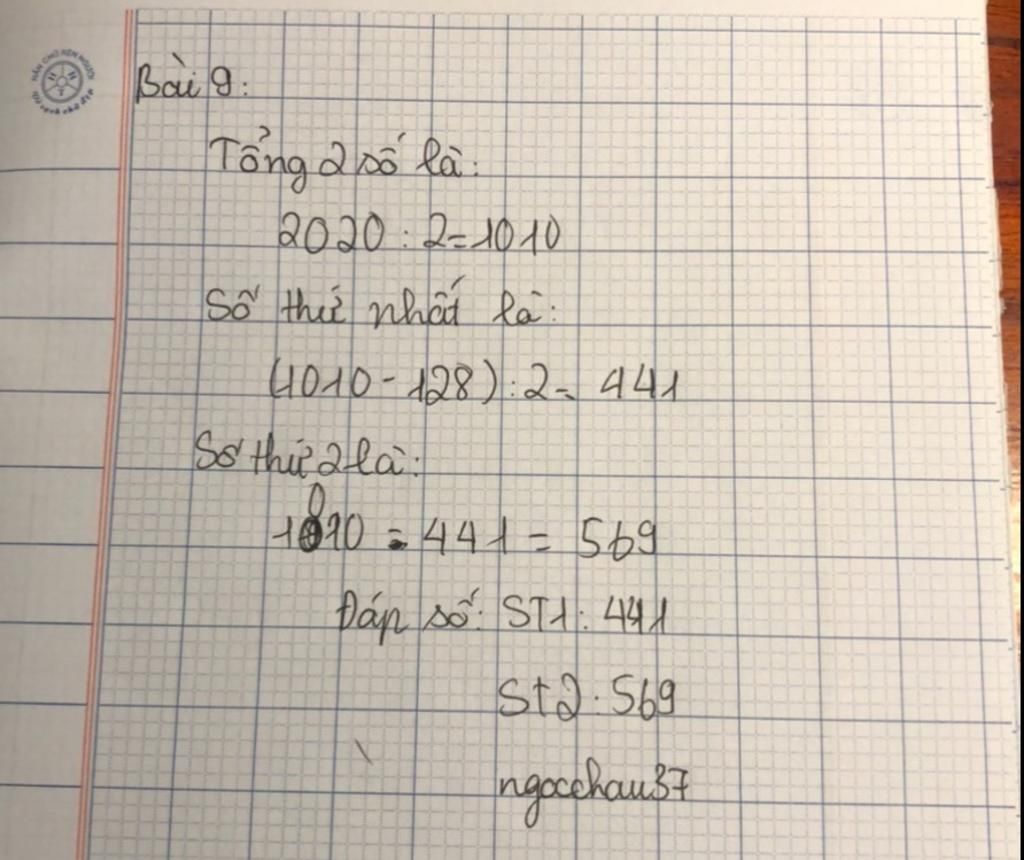 Bài 9:
Tổng 2 số là:
2020 : 2 = 1010
Số thứ nhất là:
(1010 - 128) : 2 = 441
Số thứ 2 là:
1010 - 441 = 569
Đáp số: ST1: 441
St2: 569
ngocchau37